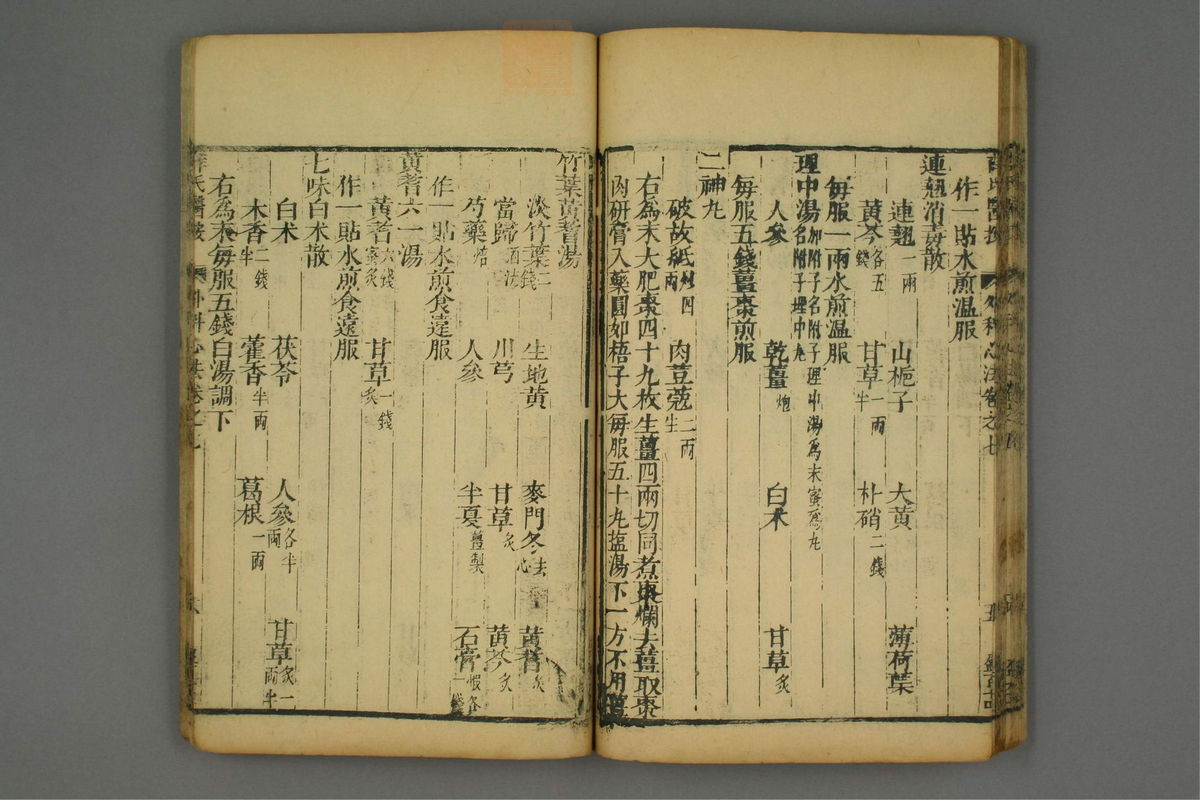 作一貼水煎温服
連翹消毒散
連翹一兩 山梔子 大黃 薄荷葉
黃芩各五錢 甘草一兩半 朴硝二錢
每服一兩水煎温服
理中湯加附子名附子理中湯為末蜜丸名附子理中丸
人參 乾薑炮 白术 甘草炙
每服五錢薑棗煎服
二神丸
破故紙炒四兩 肉荳蔻二兩生
右為末大肥棗四十九枚生薑四兩切同煮棗爛去薑取棗
肉研膏入藥圓如梧子大每服五十丸塩湯下一方不用薑
竹葉黃耆湯
淡竹葉二錢 生地黃 麥門冬去心 黃耆炙
當歸酒洗 川芎 甘草炙 黃芩炙
芍藥焙 人參 半夏薑製 石膏煅各一錢
作一貼水煎食遠服
黃耆六一湯
黃耆六錢蜜炙 甘草一錢炙
作一貼水煎食遠服
七味白术散
白术 茯苓 人參各半兩 甘草炙一兩半
木香二錢半 藿香半兩 葛根一兩
右為末每服五錢白湯調下
薛氏醫按 外科心法卷之七